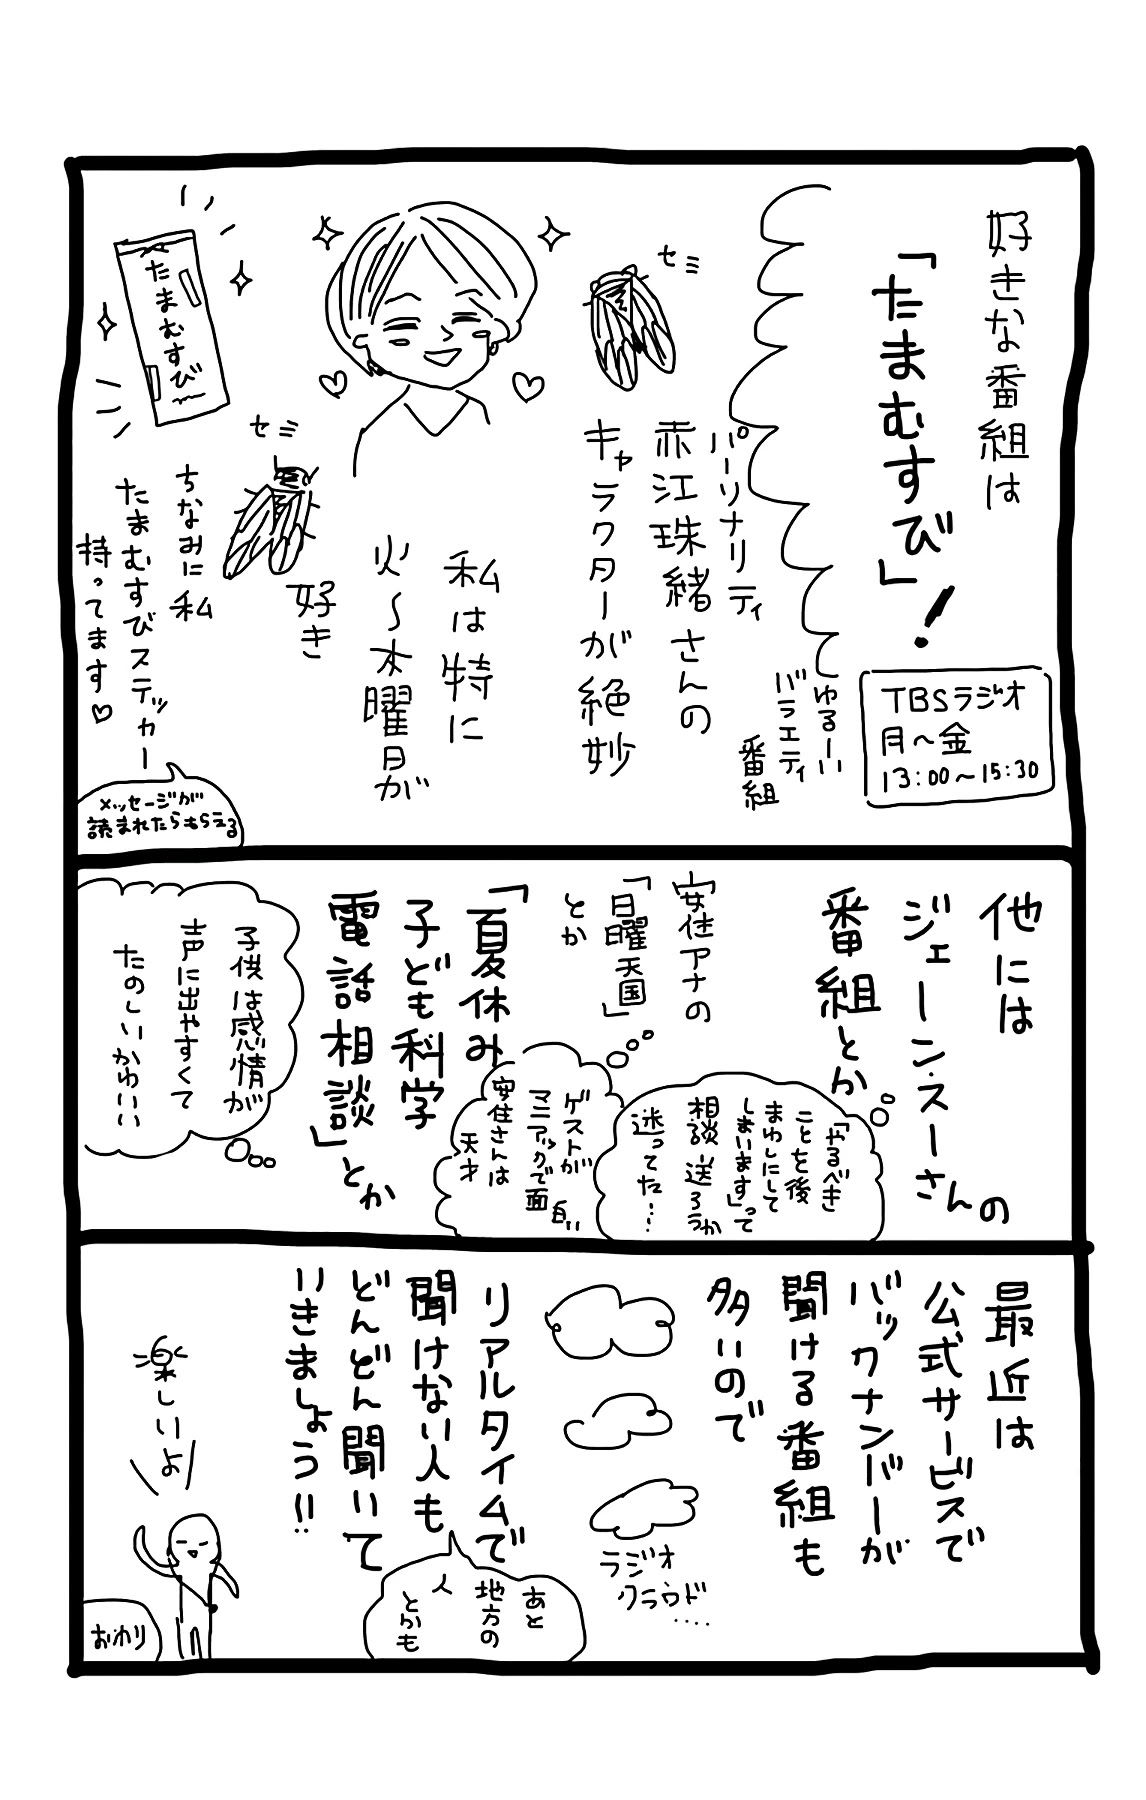 好きな番組は
「たまむすび」！
TBSラジオ
月〜金
13:00〜15:30
ゆるーい
バラエティ
番組
パーソナリティ
赤江珠緒さんの
キャラクターが絶妙
セミ
私は特に
火〜木曜日が
好き
セミ
たまむすび
ちなみに私
たまむすびステッカー
持ってます♡
メッセージが
読まれたらもらえる
他には
ジェーン・スーさんの
番組とか
「やるべき
ことを後
まわしにして
しまいます」って
相談送ろうか
迷ってた…
安住アナの
「日曜天国」
とか
ゲストが
マニアックで
面白い
安住さんは
天才
「夏休み
子ども科学
電話相談」とか
子供は感情が
声に出やすくて
たのしいかわいい
最近は
公式サービスで
バックナンバーが
聞ける番組も
多いので
ラジオ
クラウド
‥‥
リアルタイムで
聞けない人も
どんどん聞いて
いきましょう!!
あと
地方の
人
とかも
楽しいよ
おわり